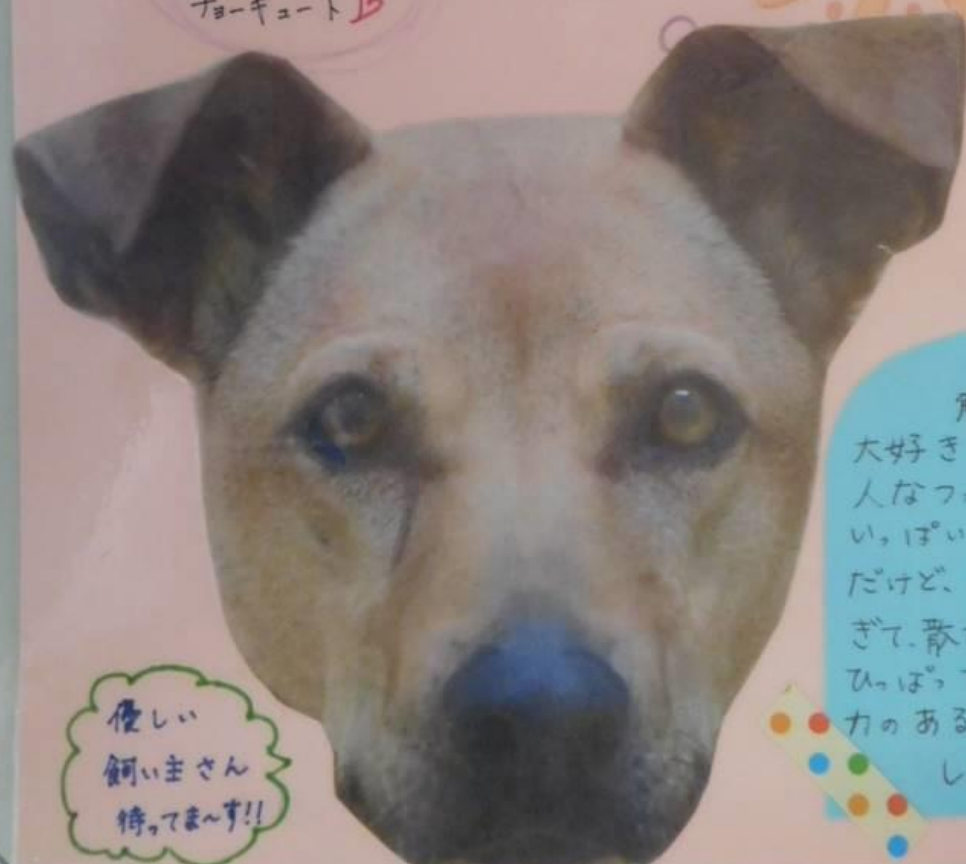 チョーキュート
優しい
飼い主さん
待ってま～す!!
大好き
人なつ
いっぱい
だけど、
ぎて、散
ひっぱって
力のある
し